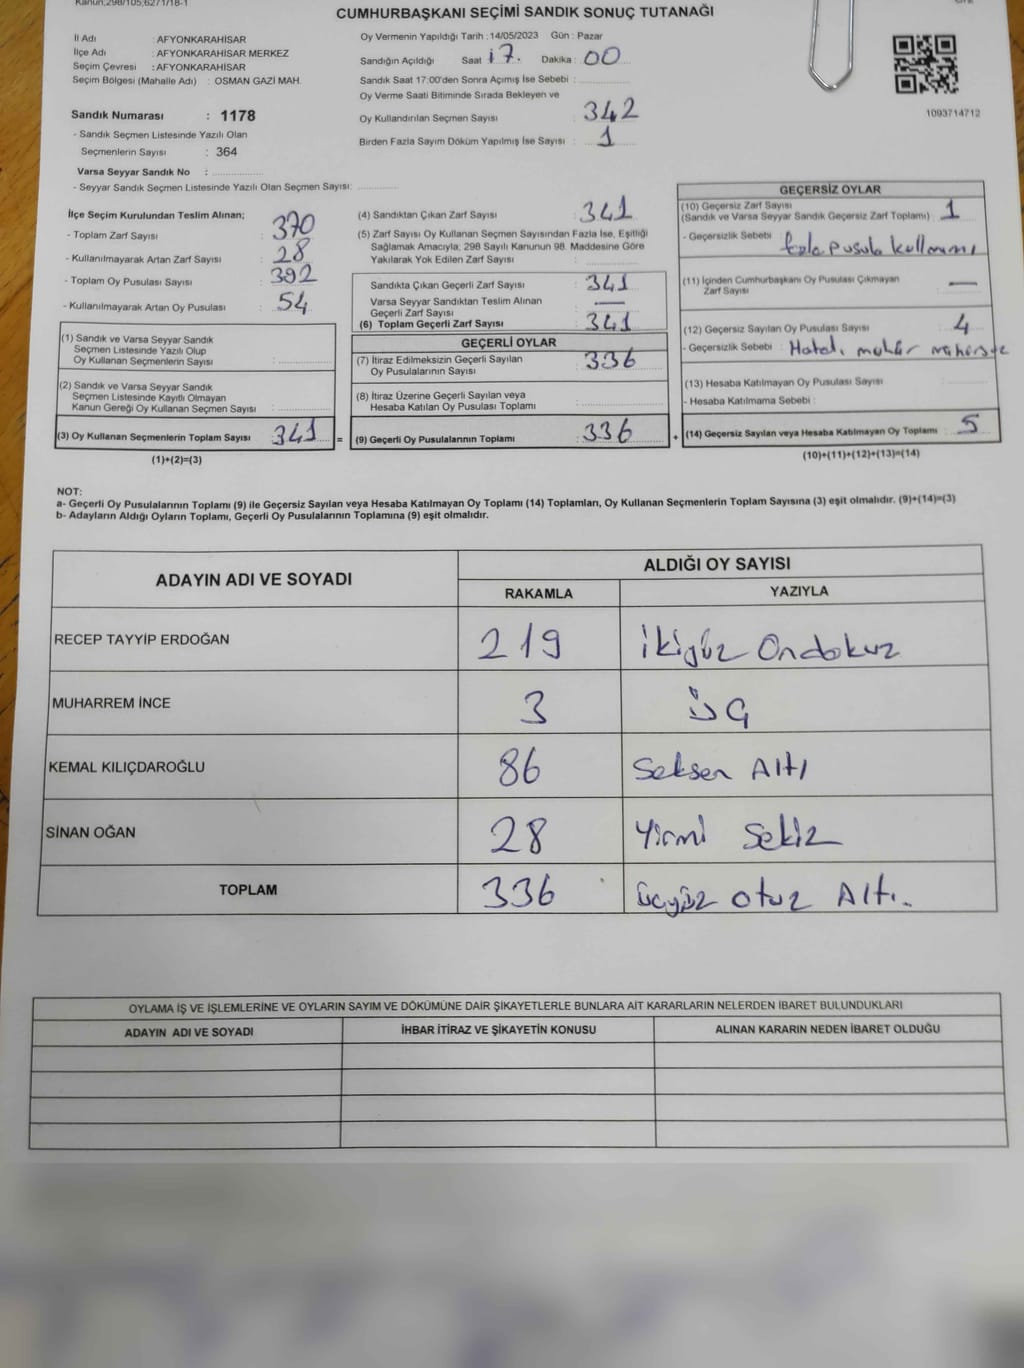 Kanun;298/105;6271/18-1
CUMHURBAŞKANI SEÇİMİ SANDIK SONUÇ TUTANAĞI
İl Adı : AFYONKARAHİSAR
İlçe Adı : AFYONKARAHİSAR MERKEZ
Seçim Çevresi : AFYONKARAHİSAR
Seçim Bölgesi (Mahalle Adı) : OSMAN GAZİ MAH.
Sandık Numarası : 1178
- Sandık Seçmen Listesinde Yazılı Olan
Seçmenlerin Sayısı : 364
Varsa Seyyar Sandık No :
- Seyyar Sandık Seçmen Listesinde Yazılı Olan Seçmen Sayısı:
Oy Vermenin Yapıldığı Tarih : 14/05/2023 Gün : Pazar
Sandığın Açıldığı Saat 17. Dakika : 00
Sandık Saat 17:00'den Sonra Açımış İse Sebebi :
Oy Verme Saati Bitiminde Sırada Bekleyen ve
Oy Kullandırılan Seçmen Sayısı : 342
Birden Fazla Sayım Döküm Yapılmış İse Sayısı : 1
1093714712
İlçe Seçim Kurulundan Teslim Alınan;
- Toplam Zarf Sayısı : 370
- Kullanılmayarak Artan Zarf Sayısı : 28
- Toplam Oy Pusulası Sayısı : 392
- Kullanılmayarak Artan Oy Pusulası : 54
(1) Sandık ve Varsa Seyyar Sandık
Seçmen Listesinde Yazılı Olup
Oy Kullanan Seçmenlerin Sayısı :
(2) Sandık ve Varsa Seyyar Sandık
Seçmen Listesinde Kayıtlı Olmayan
Kanun Gereği Oy Kullanan Seçmen Sayısı :
(3) Oy Kullanan Seçmenlerin Toplam Sayısı 341 =
(1)+(2)=(3)
(4) Sandıktan Çıkan Zarf Sayısı : 341
(5) Zarf Sayısı Oy Kullanan Seçmen Sayısından Fazla İse, Eşitliği
Sağlamak Amacıyla; 298 Sayılı Kanunun 98. Maddesine Göre
Yakılarak Yok Edilen Zarf Sayısı :
Sandıkta Çıkan Geçerli Zarf Sayısı : 341
Varsa Seyyar Sandıktan Teslim Alınan
Geçerli Zarf Sayısı : —
(6) Toplam Geçerli Zarf Sayısı : 341
GEÇERLİ OYLAR
(7) İtiraz Edilmeksizin Geçerli Sayılan
Oy Pusulalarının Sayısı : 336
(8) İtiraz Üzerine Geçerli Sayılan veya
Hesaba Katılan Oy Pusulası Toplamı :
(9) Geçerli Oy Pusulalarının Toplamı : 336 +
GEÇERSİZ OYLAR
(10) Geçersiz Zarf Sayısı
(Sandık ve Varsa Seyyar Sandık Geçersiz Zarf Toplamı) : 1
- Geçersizlik Sebebi : fazla pusula kullanımı
(11) İçinden Cumhurbaşkanı Oy Pusulası Çıkmayan
Zarf Sayısı : —
(12) Geçersiz Sayılan Oy Pusulası Sayısı : 4
- Geçersizlik Sebebi : Hatalı mühür
(13) Hesaba Katılmayan Oy Pusulası Sayısı :
- Hesaba Katılmama Sebebi :
(14) Geçersiz Sayılan veya Hesaba Katılmayan Oy Toplamı : 5
(10)+(11)+(12)+(13)=(14)
NOT:
a- Geçerli Oy Pusulalarının Toplamı (9) ile Geçersiz Sayılan veya Hesaba Katılmayan Oy Toplamı (14) Toplamları, Oy Kullanan Seçmenlerin Toplam Sayısına (3) eşit olmalıdır. (9)+(14)=(3)
b- Adayların Aldığı Oyların Toplamı, Geçerli Oy Pusulalarının Toplamına (9) eşit olmalıdır.
ADAYIN ADI VE SOYADI ALDIĞI OY SAYISI
RAKAMLA YAZIYLA
RECEP TAYYİP ERDOĞAN 219 İkiyüz Ondokuz
MUHARREM İNCE 3 Üç
KEMAL KILIÇDAROĞLU 86 Seksen Altı
SİNAN OĞAN 28 Yirmi Sekiz
TOPLAM 336 üçyüz otuz Altı.
OYLAMA İŞ VE İŞLEMLERİNE VE OYLARIN SAYIM VE DÖKÜMÜNE DAİR ŞİKAYETLERLE BUNLARA AİT KARARLARIN NELERDEN İBARET BULUNDUKLARI
ADAYIN ADI VE SOYADI İHBAR İTİRAZ VE ŞİKAYETİN KONUSU ALINAN KARARIN NEDEN İBARET OLDUĞU